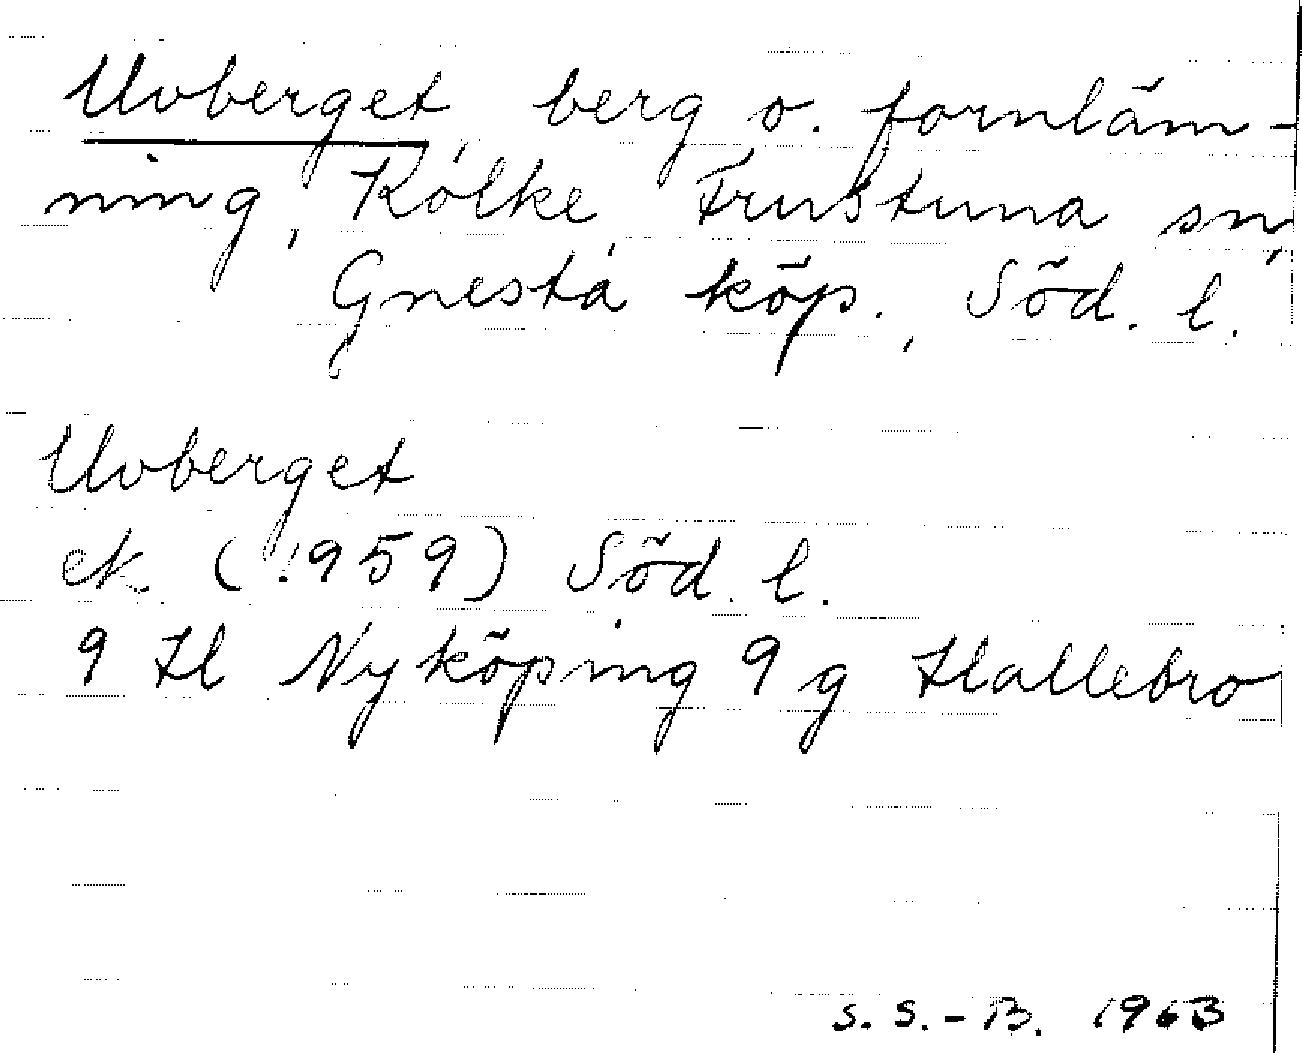 Uvberget, berg o. fornläm-
ning, Kolke, Frustuna sn,
Gnesta köp., Söd. l.
Uvberget
ek. (1959) Söd. l.
9 H Nyköping 9 g Hallebro
S. S.-B. 1963